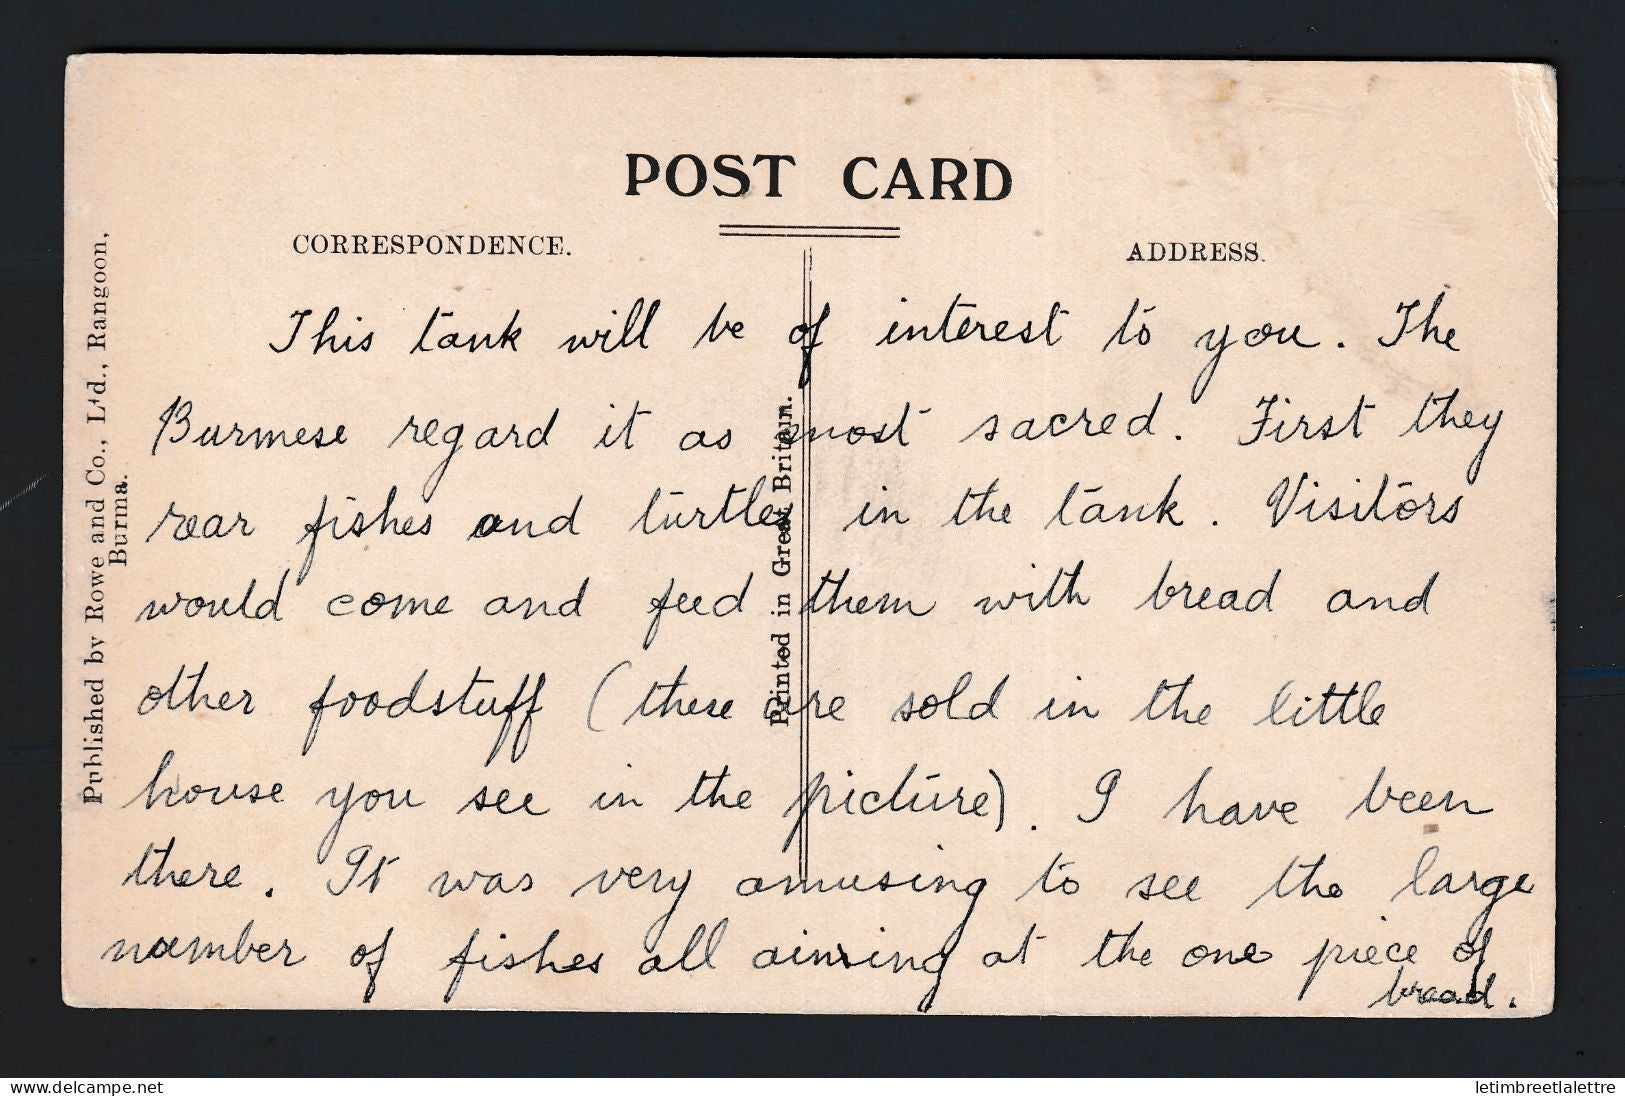 POST CARD
CORRESPONDENCE.
ADDRESS.
Published by Rowe and Co., Ltd., Rangoon,
Burma.
Printed in Great Britain.
This tank will be of interest to you. The
Burmese regard it as most sacred. First they
rear fishes and turtles in the tank. Visitors
would come and feed them with bread and
other foodstuff (these are sold in the little
house you see in the picture). I have been
there. It was very amusing to see the large
number of fishes all aiming at the one piece of
bread.
www.delcampe.net
letimbreetlalettre